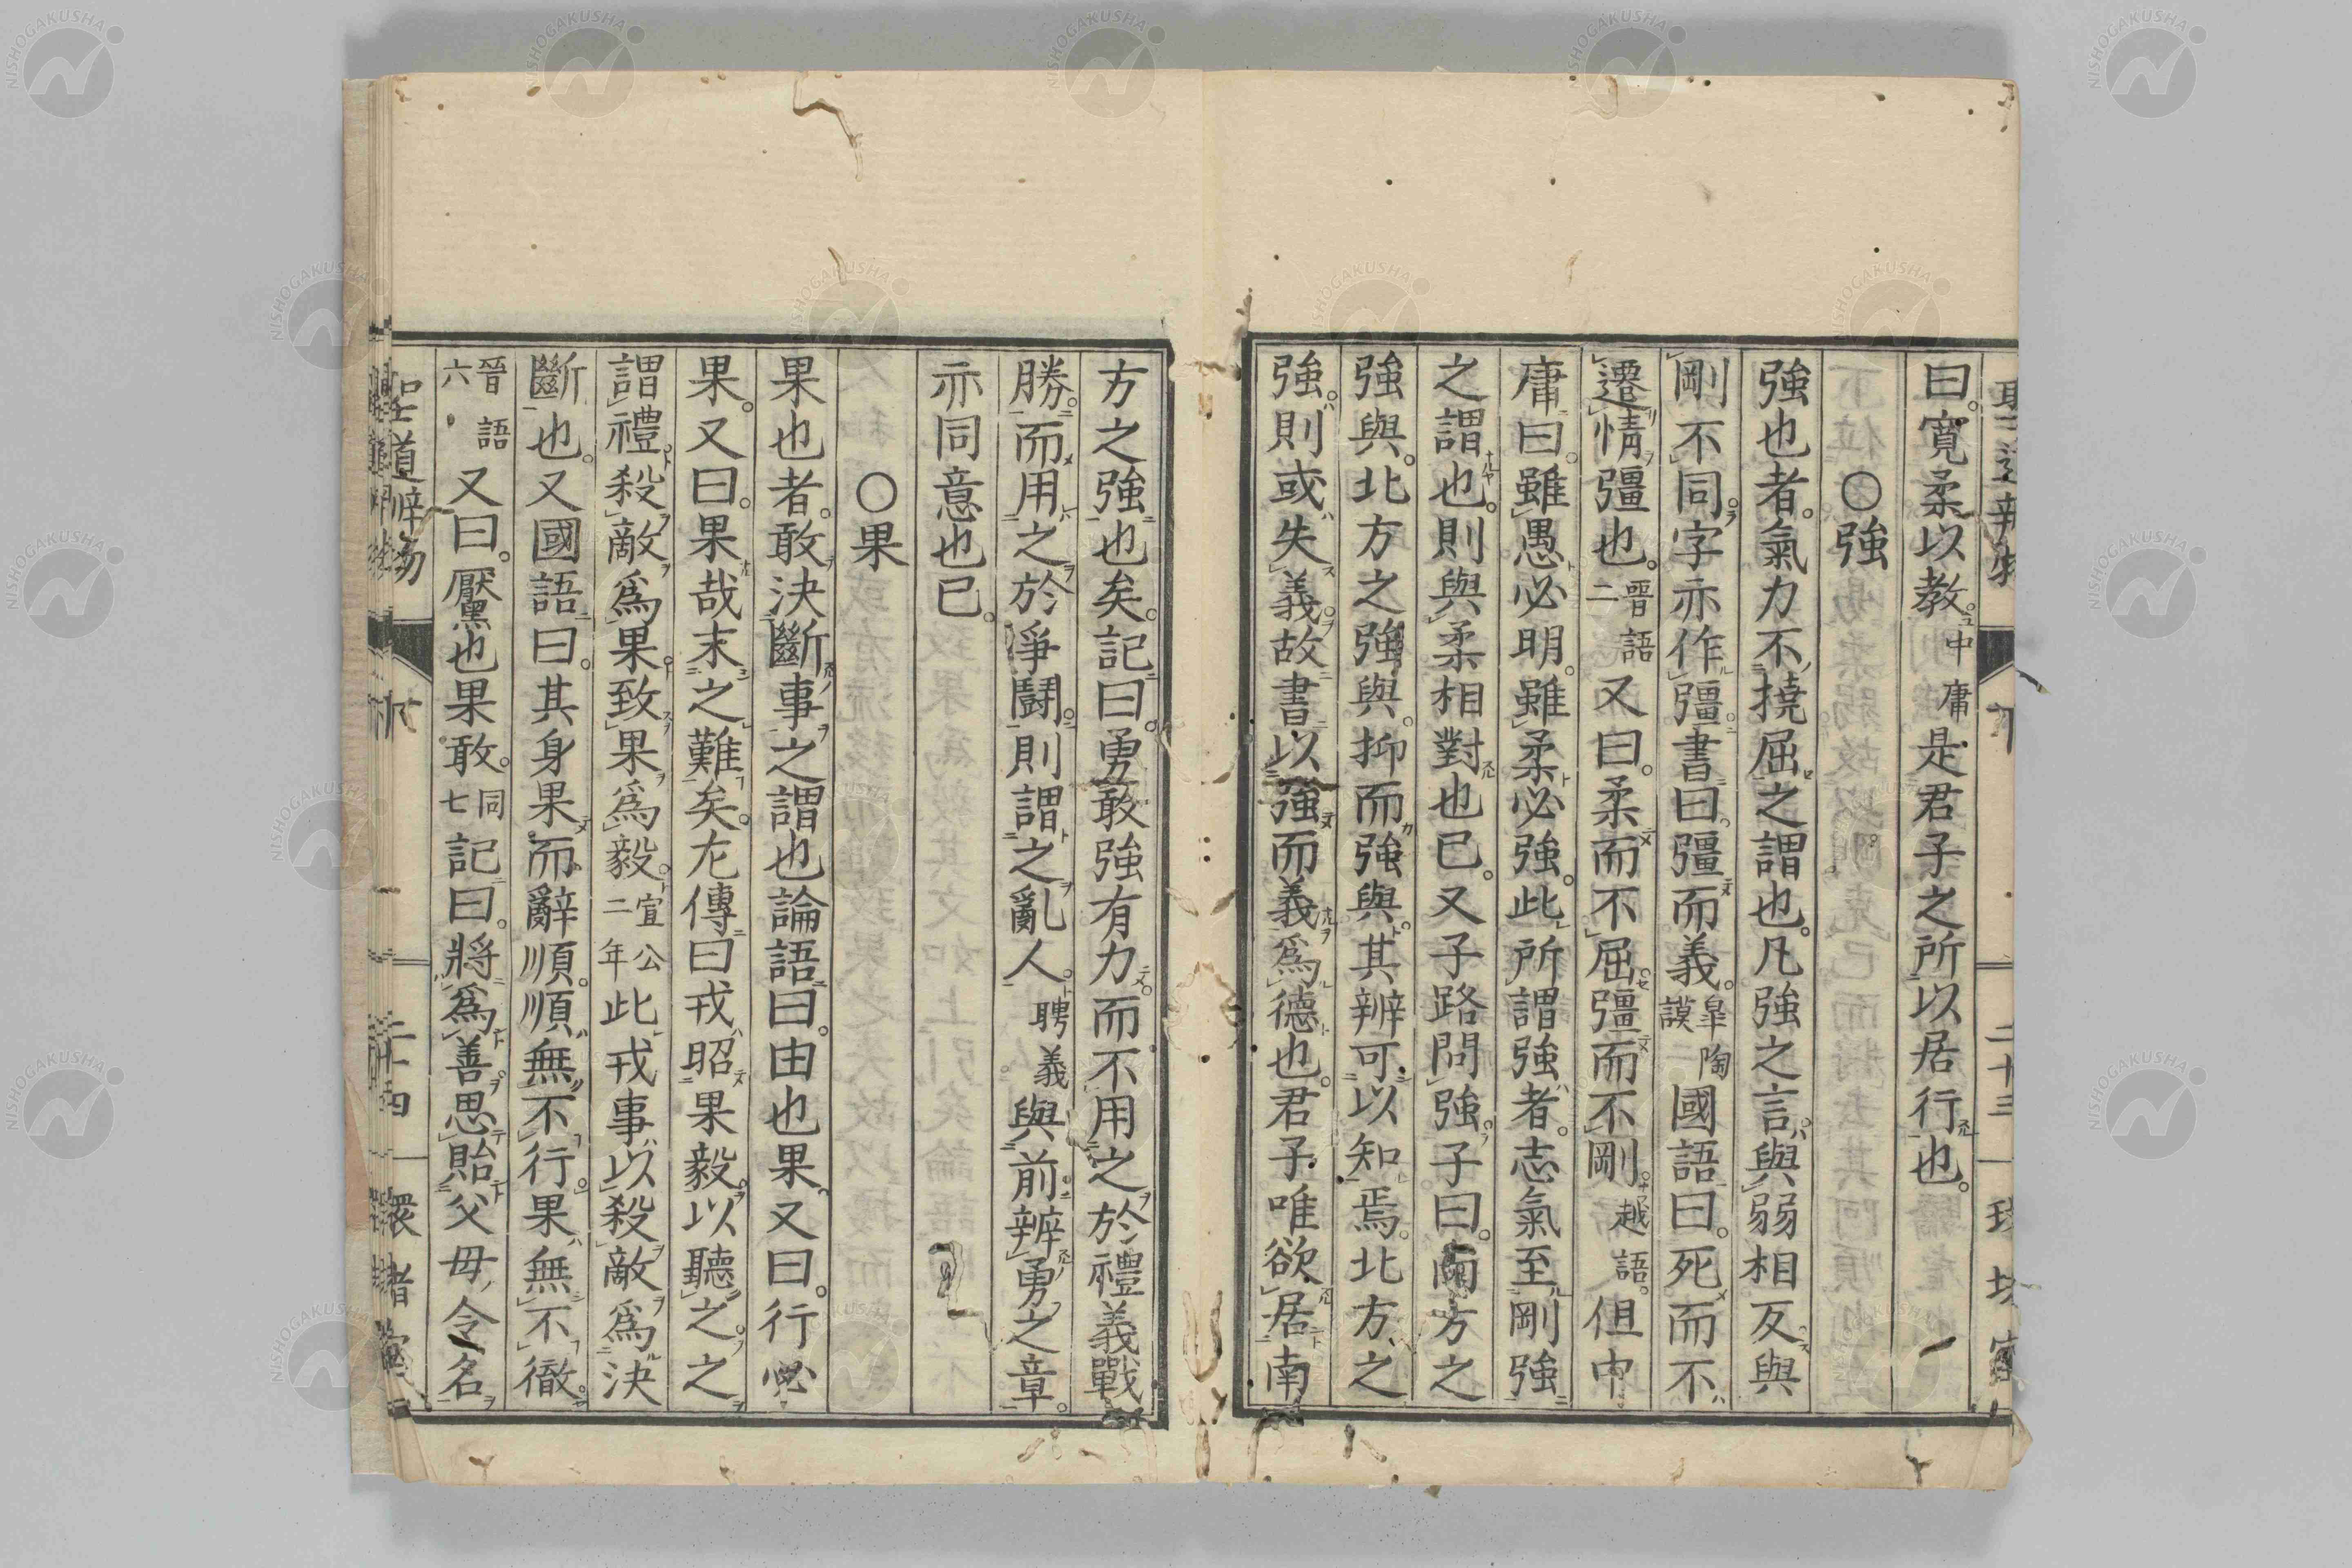 曰寬柔以教中庸是君子之所以居行也
○強
強也者氣力不撓屈之謂也凡強之言與弱相反與
剛不同字亦作彊書曰彊而義皐陶謨國語曰死而不
遷情彊也晉語二又曰柔而不屈彊而不剛越語但中
庸曰雖愚必明雖柔必強此所謂強者志氣至剛強
之謂也則與柔相對也已又子路問強子曰南方之
強與北方之強與抑而強與其辨可以知焉北方之
強則或失義故書以強而義爲德也君子唯欲居南
方之強也矣記曰勇敢強有力而不用之於禮義戰
勝而用之於爭鬪則謂之亂人聘義與前辨勇之章
亦同意也已
○果
果也者敢決斷事之謂也論語曰由也果又曰行必
果又曰果哉末之難矣左傳曰戎昭果毅以聽之之
謂禮殺敵爲果致果爲毅宣公二年此戎事以殺敵爲決
斷也又國語曰其身果而辭順順無不行果無不徹
晉語六又曰黶也果敢同七記曰將爲善思貽父母令名
聖道辨物
二十四
NISHOGAKUSHA